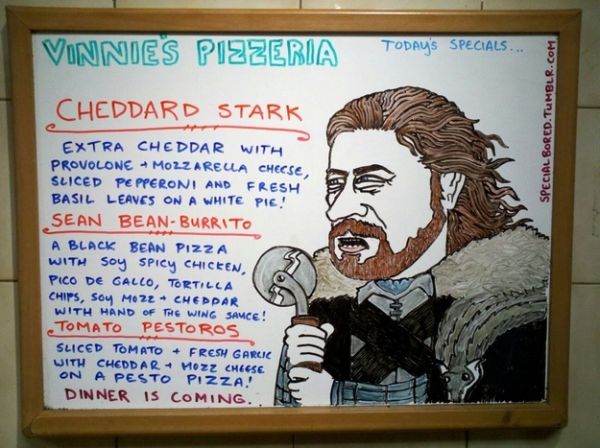 VINNIE'S PIZZERIA
TODAY'S SPECIALS...
CHEDDARD STARK
EXTRA CHEDDAR WITH
PROVOLONE + MOZZARELLA CHEESE,
SLICED PEPPERONI AND FRESH
BASIL LEAVES ON A WHITE PIE!
SEAN BEAN-BURRITO
A BLACK BEAN PIZZA
WITH SOY SPICY CHICKEN,
PICO DE GALLO, TORTILLA
CHIPS, SOY MOZZ + CHEDDAR
WITH HAND OF THE WING SAUCE!
TOMATO PESTOROS
SLICED TOMATO + FRESH GARLIC
WITH CHEDDAR + MOZZ CHEESE
ON A PESTO PIZZA!
DINNER IS COMING..
SPECIALBORED.TUMBLR.COM